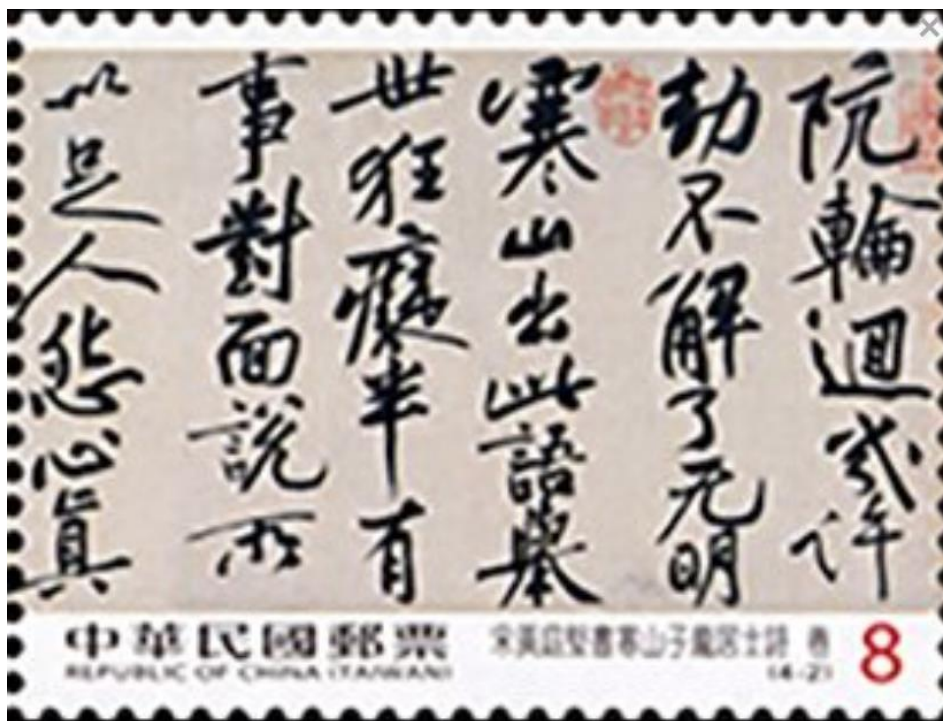 阬輪迴幾許
劫不解了无明
寒山出此語舉
世狂癡半有
事對面說所
以足人怨心真
中華民國郵票
REPUBLIC OF CHINA (TAIWAN)
宋黃庭堅書寒山子龐居士詩 卷
(4-2)
8